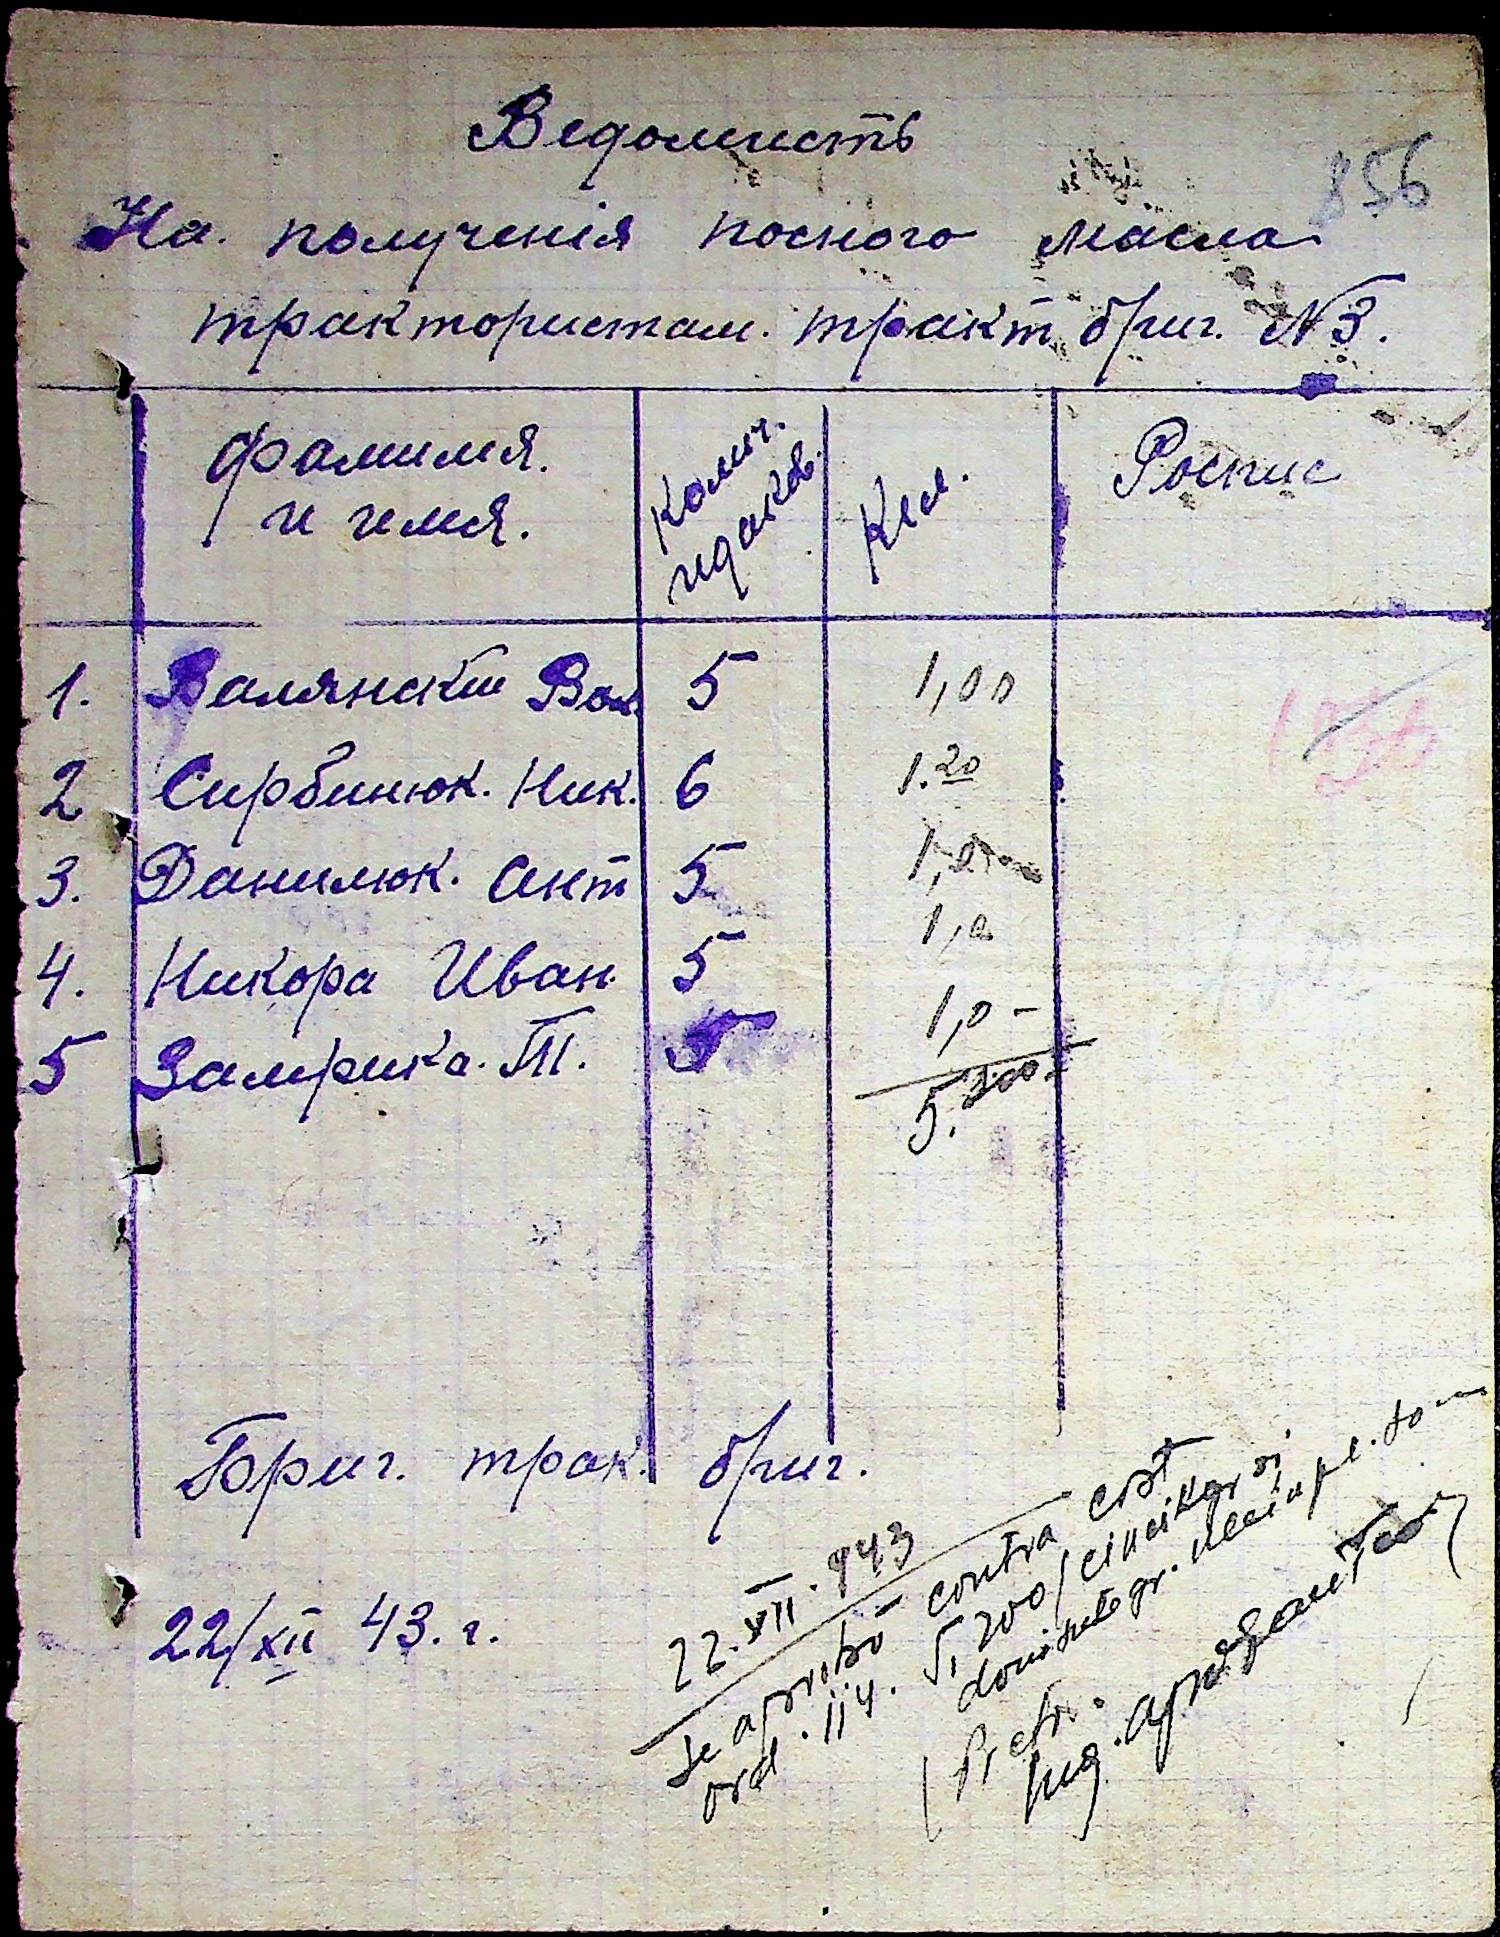 Ведомисть
856
На. полученія посного масла
трактористам. тракт бриг. №3.
Фамилия.
и имя.
Колич.
идаков.
Роспис
1. Валянскти Вол 5 1,00
2 Сирбинюк. Ник. 6 1.20
3. Данилюк. Ант 5
4. Никора Иван. 5
5 Замрика. Т. 5 1,0 –
5.200
Бриг. трак. бриг.
22/XII 43. г.
22.XII.943
Se aprobă contra cost
ord. 114. 5,200 / cinci kgr și
două sute gr. ulei
Ing.